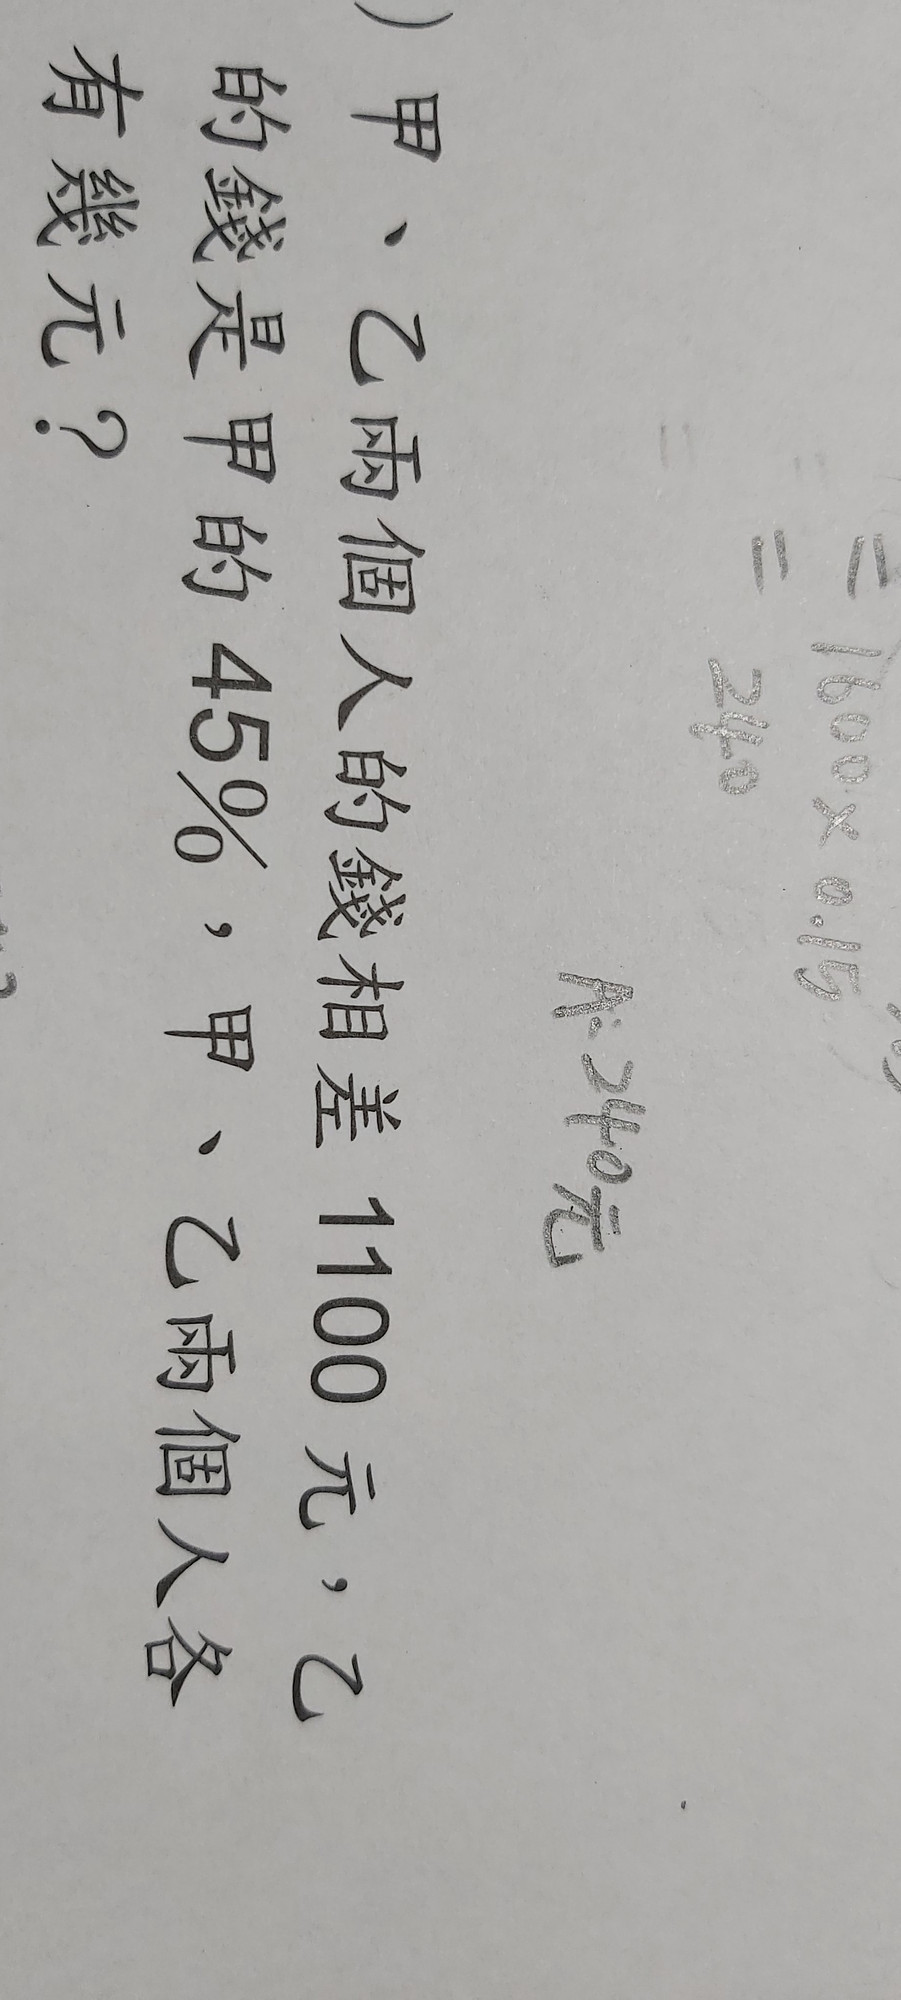 = 1600 × 0.15
= 240
A: 240元
) 甲、乙兩個人的錢相差 1100 元,乙
的錢是甲的 45%,甲、乙兩個人各
有幾元?